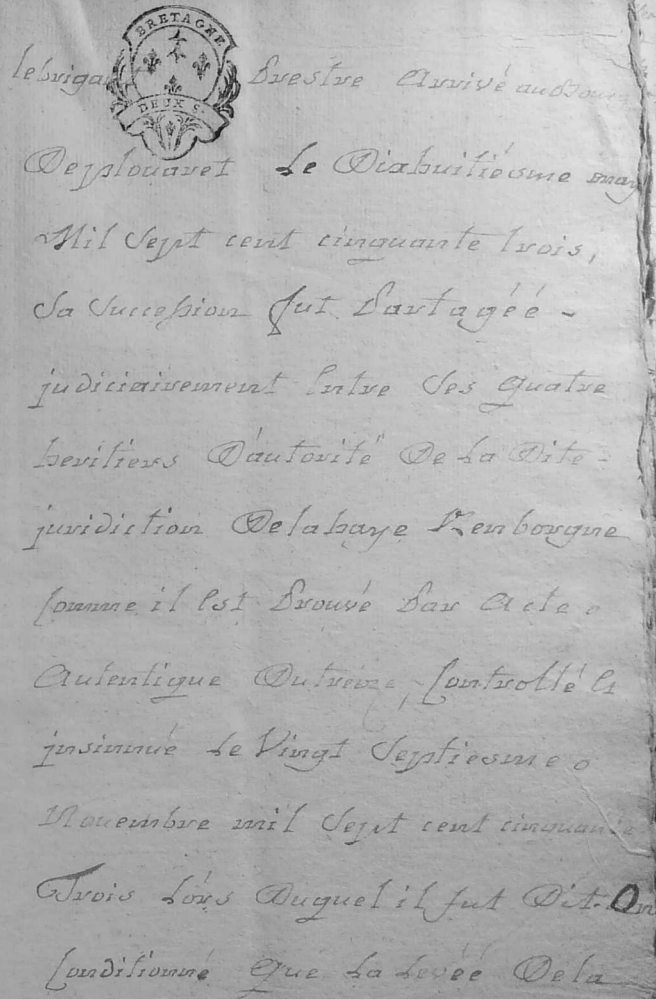 BRETAGNE
DEUX S.
lebriga Prestre Arrivé au Bourg
Deplouaret Le Dixhuitiésme may
Mil Sept cent cinquante trois,
Sa Succession fut Partagéé -
judiciairement Entre Ses quatre
heritiers D'autorité De La Dite
juridiction Delahaye Kenborgne
Comme il Est Prouvé Par Acte
Autentique Dutreize, Controllé Et
jnsinnué Le Vingt Septiesme
Novembre mil Sept cent cinquante
Trois Lórs Duquel il fut Dit On
Conditionné Que La Levéé Dela